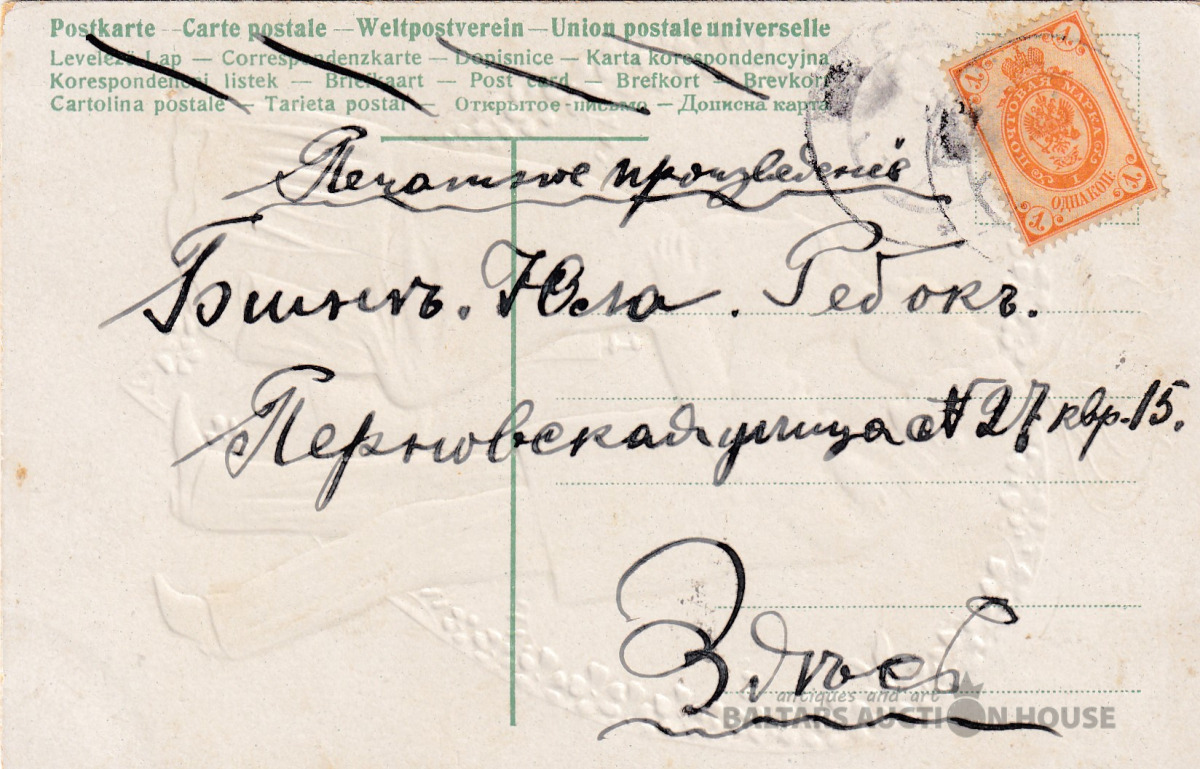 Postkarte — Carte postale — Weltpostverein — Union postale universelle
Levelező Lap — Correspondenzkarte — Dopisnice — Karta korespondencyjna
Korespondenční listek — Briefkaart — Post card — Brefkort — Brevkort
Cartolina postale — Tarjeta postal — Открытое письмо — Дописна карта
Печатное произведенiе
Бшнкъ. Юла. Ребокъ.
Перновская улица № 27 квр. 15.
Здѣсь
ПОЧТОВАЯ МАРКА
1 КОП.
ОДНА КОП.
1
1
1
1
antiques and art
BALTARS AUCTION HOUSE